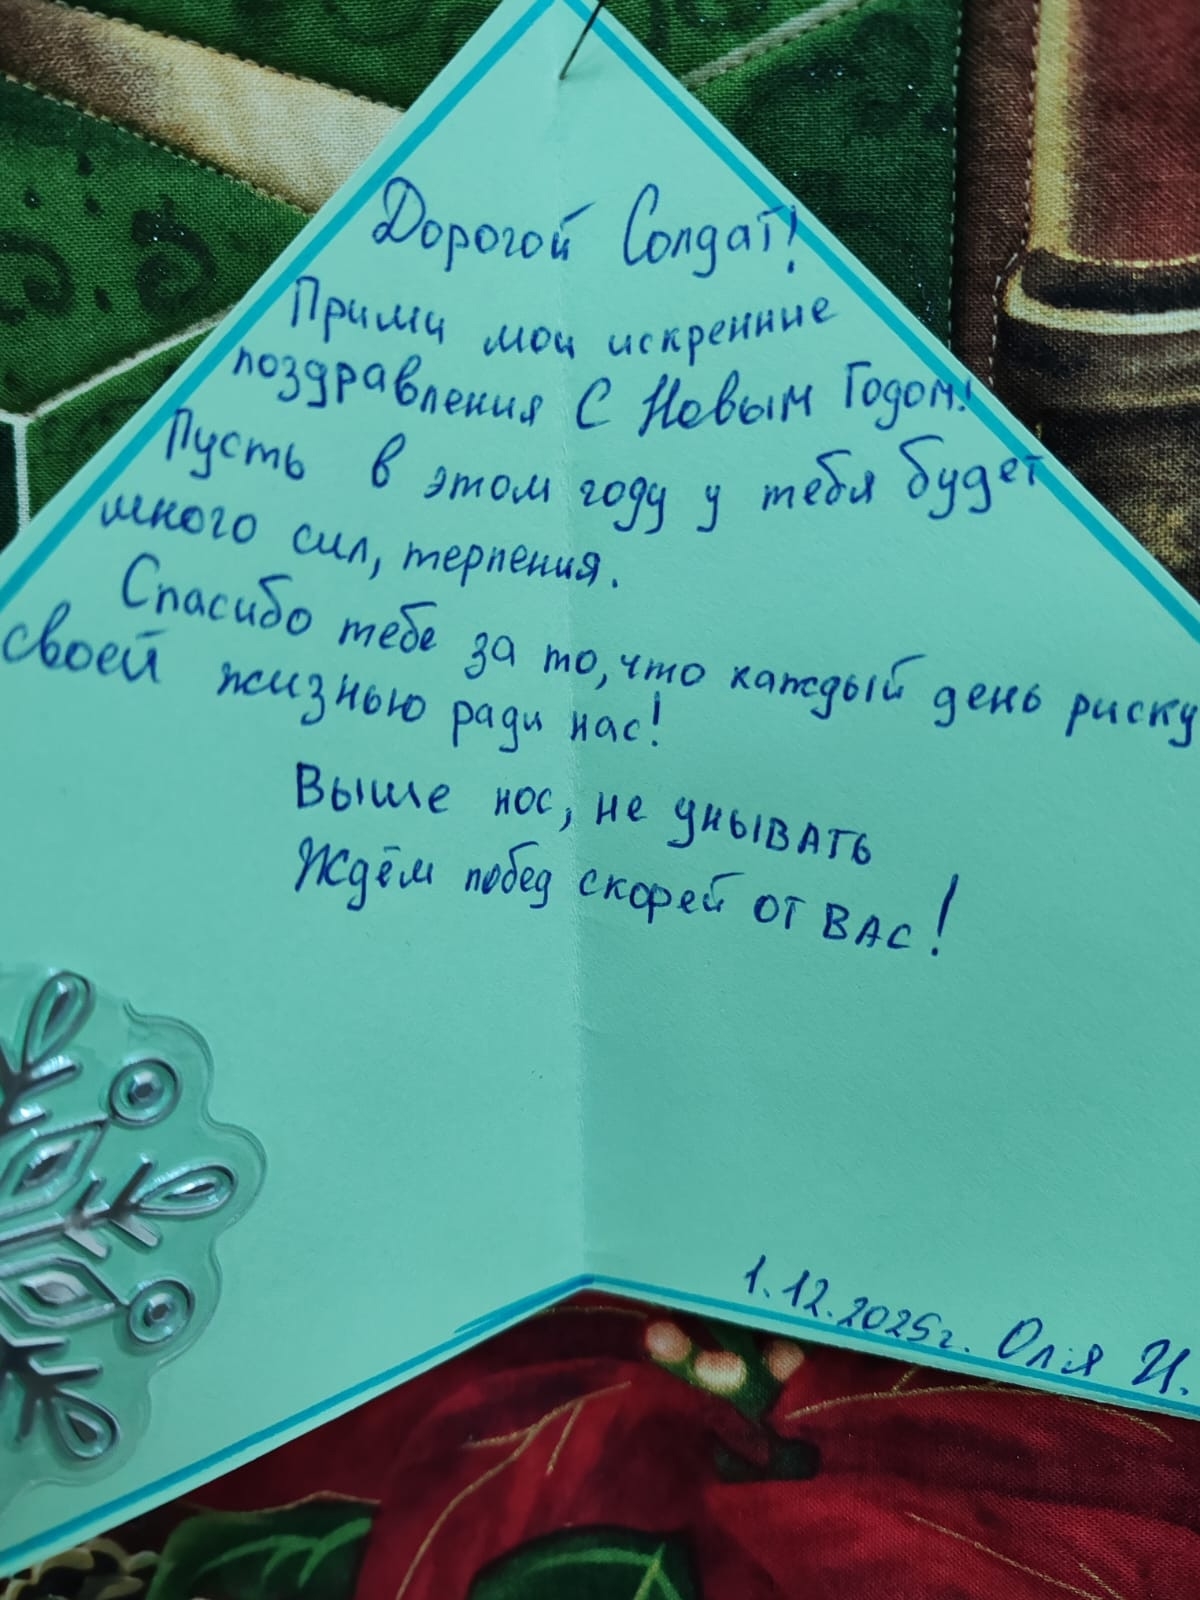 Дорогой Солдат!
Прими мои искренние
поздравления С Новым Годом!
Пусть в этом году у тебя будет
много сил, терпения.
Спасибо тебе за то, что каждый день риску
своей жизнью ради нас!
Выше нос, не унывать
Ждём побед скорей от вас!
1.12.2025г. Оля И.